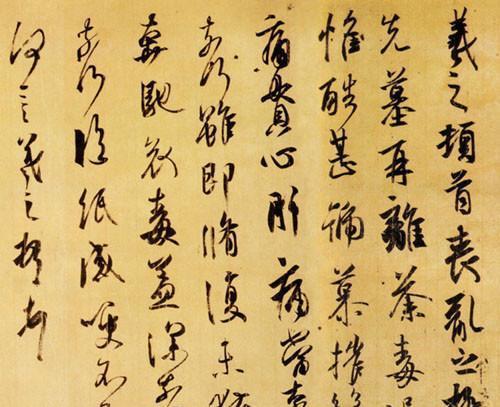 羲之頓首喪亂之極
先墓再離荼毒追
惟酷甚號慕摧絕
痛貫心肝痛當奈
奈何雖即脩復未獲
奔馳哀毒益深奈
奈何臨紙感哽不
何言羲之頓首